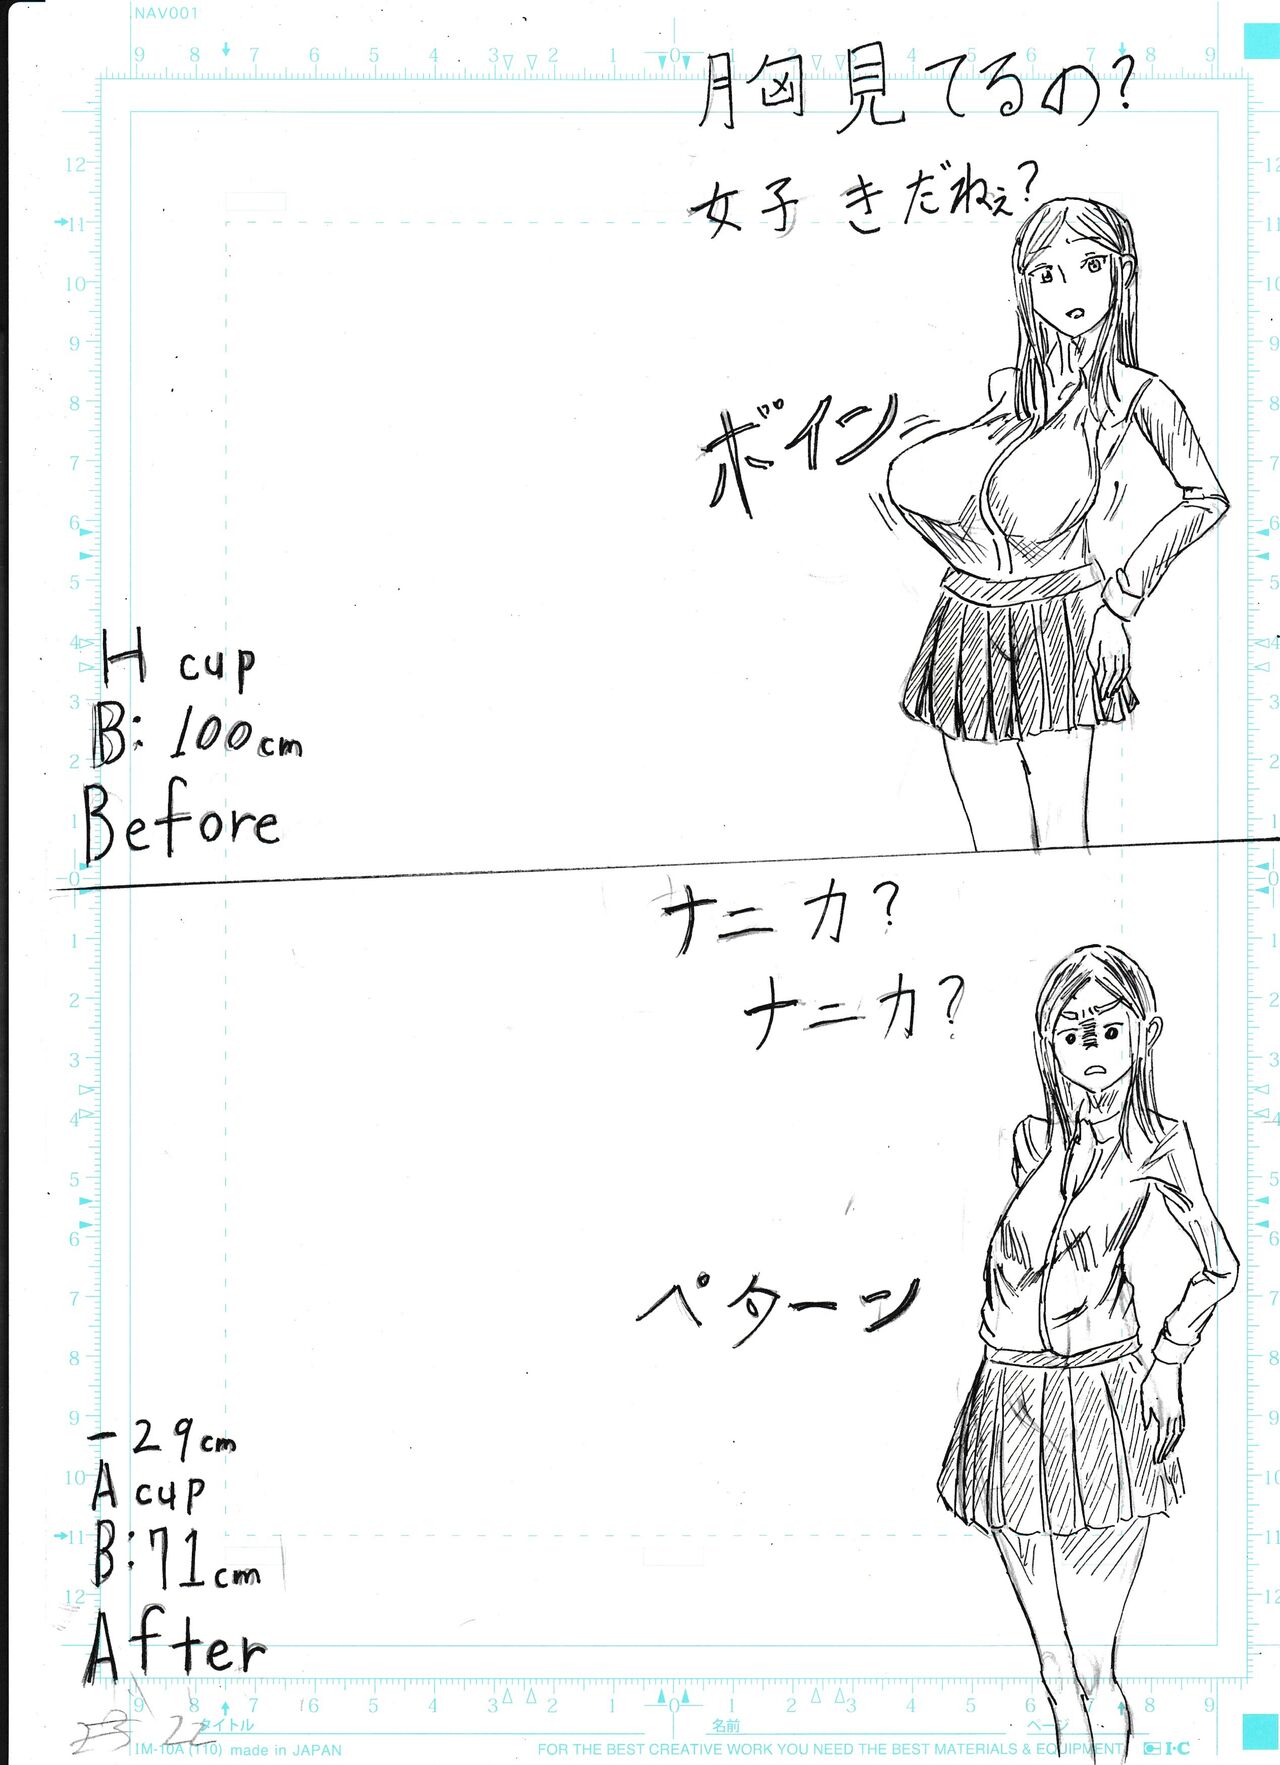 NAV001
9 8 7 6 5 4 3 2 1 0 1 2 3 4 5 6 7 8 9
胸見てるの?
女子きだねぇ?
ボイン
H cup
B: 100cm
Before
ナニカ?
ナニカ?
ペターン
-29cm
A cup
B: 71cm
After
9 8 7 6 5 4 3 2 1 0 1 2 3 4 5 6 7 8 9
タイトル
名前
ページ
IM-10A (110) made in JAPAN
FOR THE BEST CREATIVE WORK YOU NEED THE BEST MATERIALS & EQUIPMENT.
I·C